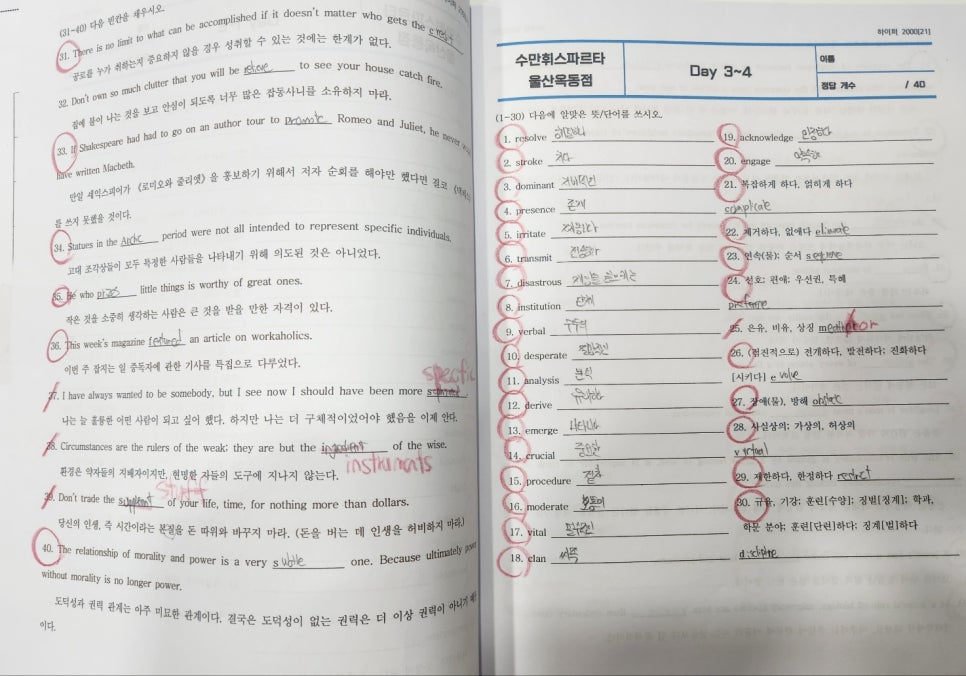 (31~40) 다음 빈칸을 채우시오.
31. There is no limit to what can be accomplished if it doesn't matter who gets the credit
공로를 누가 취하는지 중요하지 않을 경우 성취할 수 있는 것에는 한계가 없다.
32. Don't own so much clutter that you will be relieve to see your house catch fire.
집에 불이 나는 것을 보고 안심이 되도록 너무 많은 잡동사니를 소유하지 마라.
33. If Shakespeare had had to go on an author tour to promote Romeo and Juliet, he never
have written Macbeth.
만일 셰익스피어가 《로미오와 줄리엣》을 홍보하기 위해서 저자 순회를 해야만 했다면 결코
를 쓰지 못했을 것이다.
34. Statues in the Arctic period were not all intended to represent specific individuals.
고대 조각상들이 모두 특정한 사람들을 나타내기 위해 의도된 것은 아니었다.
35. He who prizes little things is worthy of great ones.
작은 것을 소중히 생각하는 사람은 큰 것을 받을 만한 자격이 있다.
36. This week's magazine featured an article on workaholics.
이번 주 잡지는 일 중독자에 관한 기사를 특집으로 다루었다.
specific
37. I have always wanted to be somebody, but I see now I should have been more
나는 늘 훌륭한 어떤 사람이 되고 싶어 했다. 하지만 나는 더 구체적이었어야 했음을 이제 안다.
38. Circumstances are the rulers of the weak; they are but the ingredient of the wise.
instruments
환경은 약자들의 지배자이지만, 현명한 자들의 도구에 지나지 않는다.
stuff
39. Don't trade the of your life, time, for nothing more than dollars.
당신의 인생, 즉 시간이라는 본질을 돈 따위와 바꾸지 마라. (돈을 버는 데 인생을 허비하지 마라)
40. The relationship of morality and power is a very subtle one. Because ultimately power
without morality is no longer power.
도덕성과 권력 관계는 아주 미묘한 관계이다. 결국은 도덕성이 없는 권력은 더 이상 권력이 아니기 때문
이다.
하이퍼 2000[21]
수만휘스파르타
울산옥동점
Day 3~4
이름
정답 개수 / 40
(1-30) 다음에 알맞은 뜻/단어를 쓰시오.
1. resolve
2. stroke 치다
3. dominant 지배적인
4. presence 존재
5. irritate
6. transmit 전송하다
7. disastrous
8. institution 단체
9. verbal
10. desperate 절망적인
11. analysis 분석
12. derive 유래하다
13. emerge 나타나다
14. crucial 중요한
15. procedure 절차
16. moderate 보통의
17. vital 필수적인
18. clan 씨족
19. acknowledge 인정하다
20. engage 약속하다
21. 복잡하게 하다, 얽히게 하다
complicate
22. 제거하다, 없애다 eliminate
23. 연속(물); 순서 sequence
24. 선호; 편애; 우선권, 특혜
preference
25. 은유, 비유, 상징
26. (점진적으로) 전개하다, 발전하다; 진화하다
[시키다] evolve
27. 장애(물), 방해 obstacle
28. 사실상의; 가상의, 허상의
virtual
29. 제한하다, 한정하다 restrict
30. 규율, 기강; 훈련[수양]; 징벌[징계]; 학과,
학문 분야; 훈련[단련]하다; 징계[벌]하다
discipline